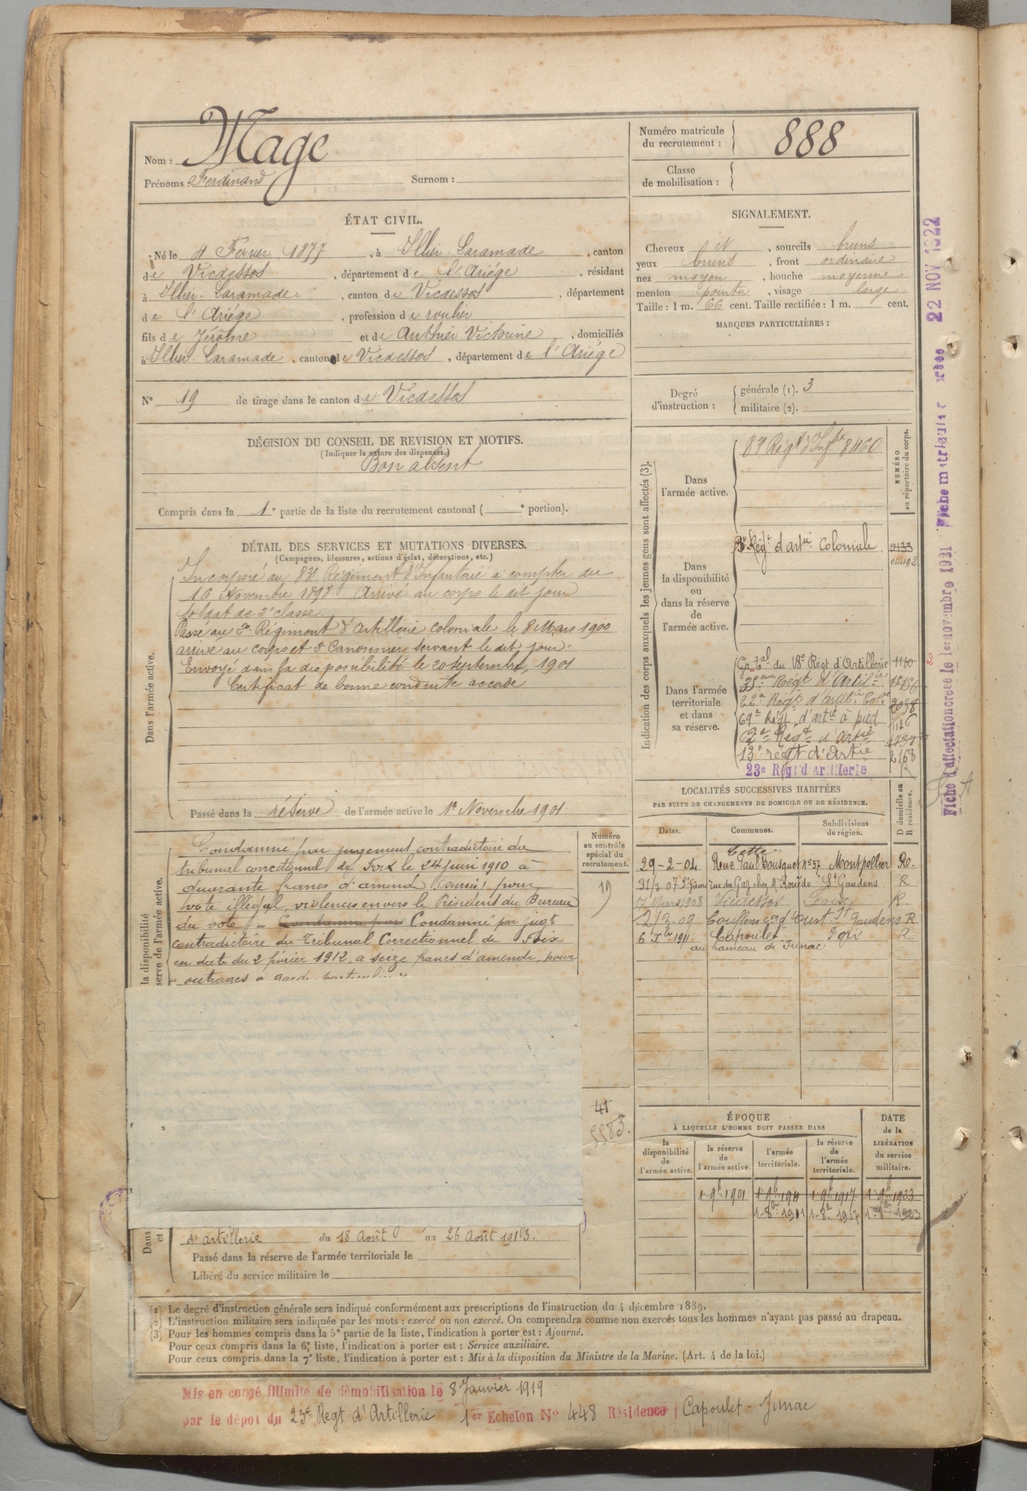 Nom : Mage
Prénoms : Ferdinand Surnom :
Numéro matricule du recrutement : 888
Classe de mobilisation :
ÉTAT CIVIL.
Né le 4 Février 1877, à Illier-Laramade, canton
de Vicdessos, département de l'Ariége, résidant
à Illier-Laramade, canton de Vicdessos, département
de l'Ariége, profession de roulier
fils de Jérôme et de Authier Victorine, domiciliés
à Illier Laramade, canton de Vicdessos, département de l'Ariége
N° 19 de tirage dans le canton de Vicdessos
SIGNALEMENT.
Cheveux N, sourcils bruns
yeux bruns, front ordinaire
nez moyen, bouche moyenne
menton pointu, visage large
Taille : 1 m. 66 cent. Taille rectifiée : 1 m. cent.
MARQUES PARTICULIÈRES :
Degré d'instruction : générale (1). 3
militaire (2).
DÉCISION DU CONSEIL DE REVISION ET MOTIFS.
(Indiquer la nature des dispenses.)
Bon absent
Compris dans la 1e partie de la liste du recrutement cantonal ( e portion).
DÉTAIL DES SERVICES ET MUTATIONS DIVERSES.
(Campagnes, blessures, actions d'éclat, décorations, etc.)
Dans l'armée active.
Incorporé au 83e Régiment d'Infanterie à compter du
16 Novembre 1898 Arrivé au corps le dit jour
soldat de 2e classe
Passé au 3e Régiment d'Artillerie coloniale le 8 Mars 1900
arrivé au corps et 2e Canonnier servant le dit jour.
Envoyé dans la disponibilité le 20 septembre 1901
Certificat de bonne conduite accordé
Passé dans la réserve de l'armée active le 1er Novembre 1901
la disponibilité
serve de l'armée active.
Condamné par jugement contradictoire du
tribunal correctionnel de Foix le 24 juin 1910 à
quarante francs d'amende pour
vote illégal, violences envers le Président du Bureau
du vote – Condamné par Condamné par jugt
contradictoire du Tribunal Correctionnel de Foix
en date du 2 février 1912, a seize francs d'amende, pour
outrages à
Numéro au contrôle spécial du recrutement.
19
41
Dans
et
d'artillerie du 18 Août au 26 Août 1913.
Passé dans la réserve de l'armée territoriale le
Libéré du service militaire le
Indication des corps auxquels les jeunes gens sont affectés (3).
NUMÉRO au répertoire du corps.
Dans l'armée active.
83e Régt d'Infie 8460
Dans la disponibilité ou dans la réserve de l'armée active.
3e Régt d'artie Coloniale
Dans l'armée territoriale et dans sa réserve.
Gr. Tal du 18e Régt d'Artillerie 1140
69e Régt d'artie à pied
2e Régt d'artie
13e régt d'Artie 2168
23e Régt d'Artillerie
LOCALITÉS SUCCESSIVES HABITÉES
PAR SUITE DE CHANGEMENTS DE DOMICILE OU DE RÉSIDENCE.
Dates. Communes. Subdivisions de région. D domicile ou R résidence.
Cette
29-2-04 Rue Paul Bousquet No 37 Montpellier Re.
St Gaudens R
7 Mars 1908 Vicdessos Foix R.
St Gaudens R
Capoulet Foix R
au hameau de Junac
ÉPOQUE
À LAQUELLE L'HOMME DOIT PASSER DANS
la disponibilité de l'armée active. la réserve de l'armée active. l'armée territoriale. la réserve de l'armée territoriale.
DATE de la LIBÉRATION du service militaire.
1-9e 1901 1-9e 1911 1-9e 1917 1-9e 1923
(1) Le degré d'instruction générale sera indiqué conformément aux prescriptions de l'instruction du 4 décembre 1889.
(2) L'instruction militaire sera indiquée par les mots : exercé ou non exercé. On comprendra comme non exercés tous les hommes n'ayant pas passé au drapeau.
(3) Pour les hommes compris dans la 5e partie de la liste, l'indication à porter est : Ajourné.
Pour ceux compris dans la 6e liste, l'indication à porter est : Service auxiliaire.
Pour ceux compris dans la 7e liste, l'indication à porter est : Mis à la disposition du Ministre de la Marine. (Art. 4 de la loi.)
Mis en congé illimité de démobilisation le 8 Janvier 1919
par le dépôt du 23e Régt d'Artillerie 1er Echelon N° 448 Résidence Capoulet-Junac
Fiche d'affectation créée le 1er novembre 1921 Fiche matricule créée 22 NOV 1922